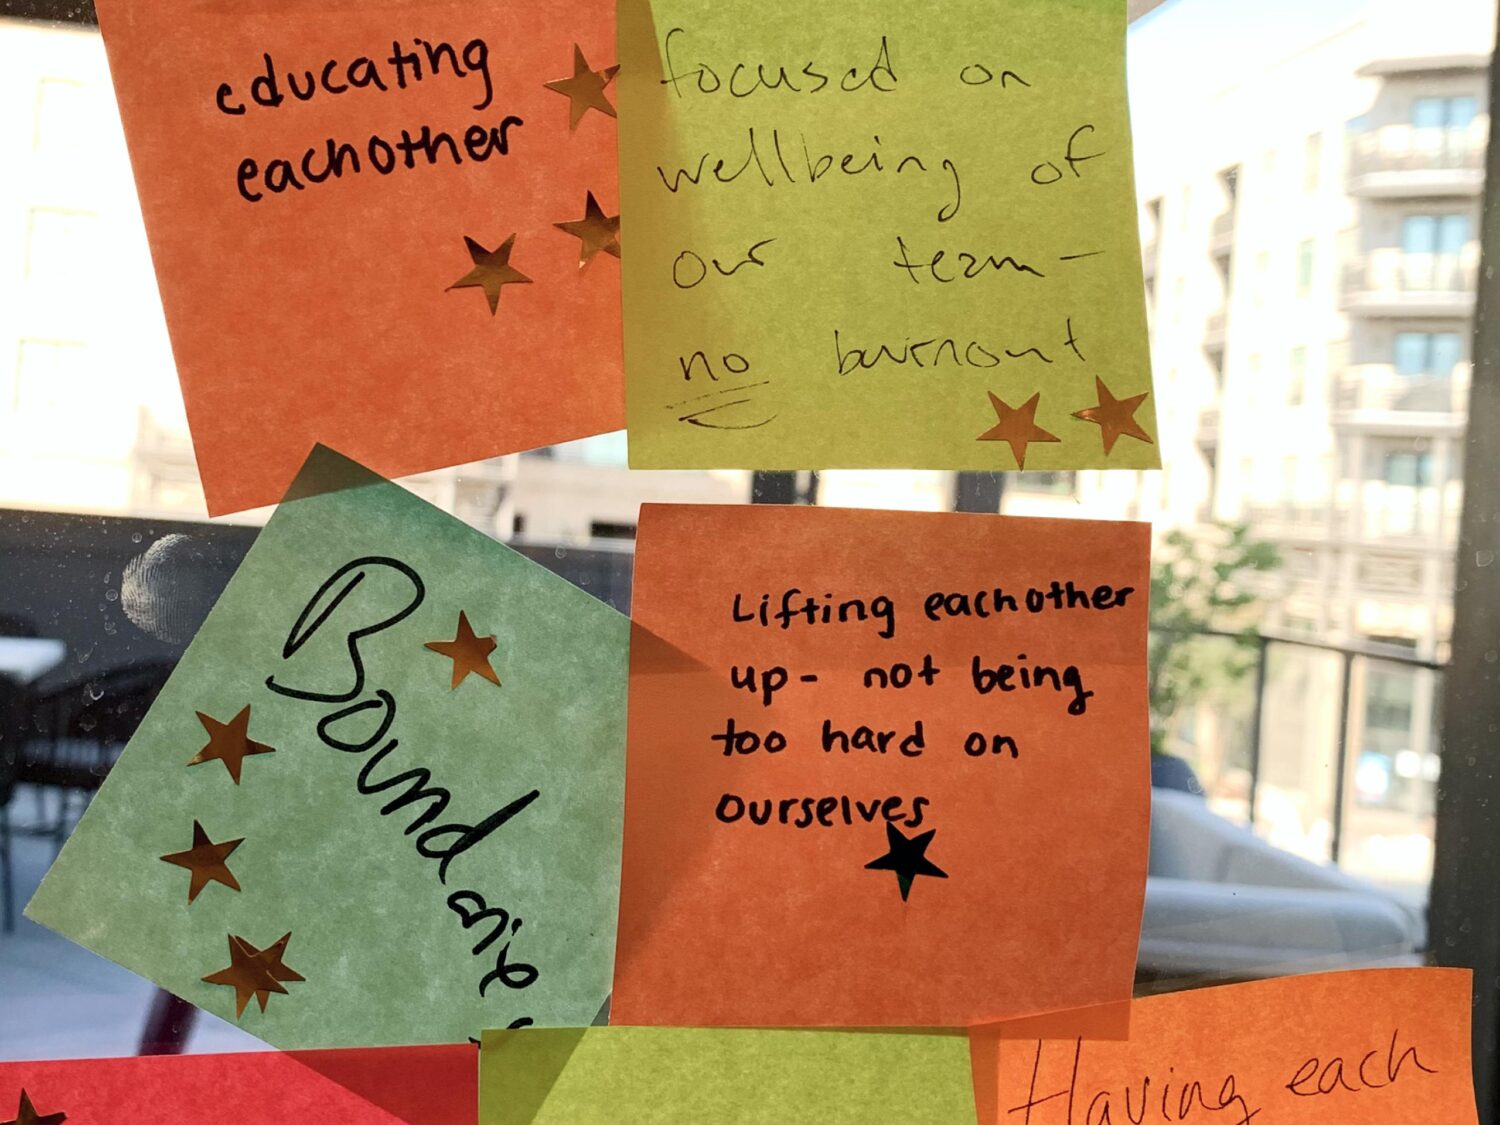 educating
eachother
focused on
wellbeing of
our team-
no burnout
Boundaries
Lifting eachother
up- not being
too hard on
ourselves
Having each